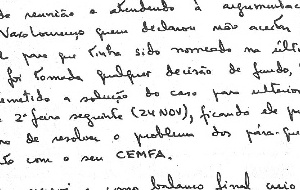 de reunião e atendendo à argumentaç
Vasco Lourenço quem declarou não aceitar
l para que tinha sido nomeado na últi
foi tomada qualquer decisão de fundo,
emetido a solução do caso para ulterior
2ª feira seguinte (24 NOV), ficando de p
o de resolver o problema dos pára-que
to com o seu CEMFA.
como balanço final